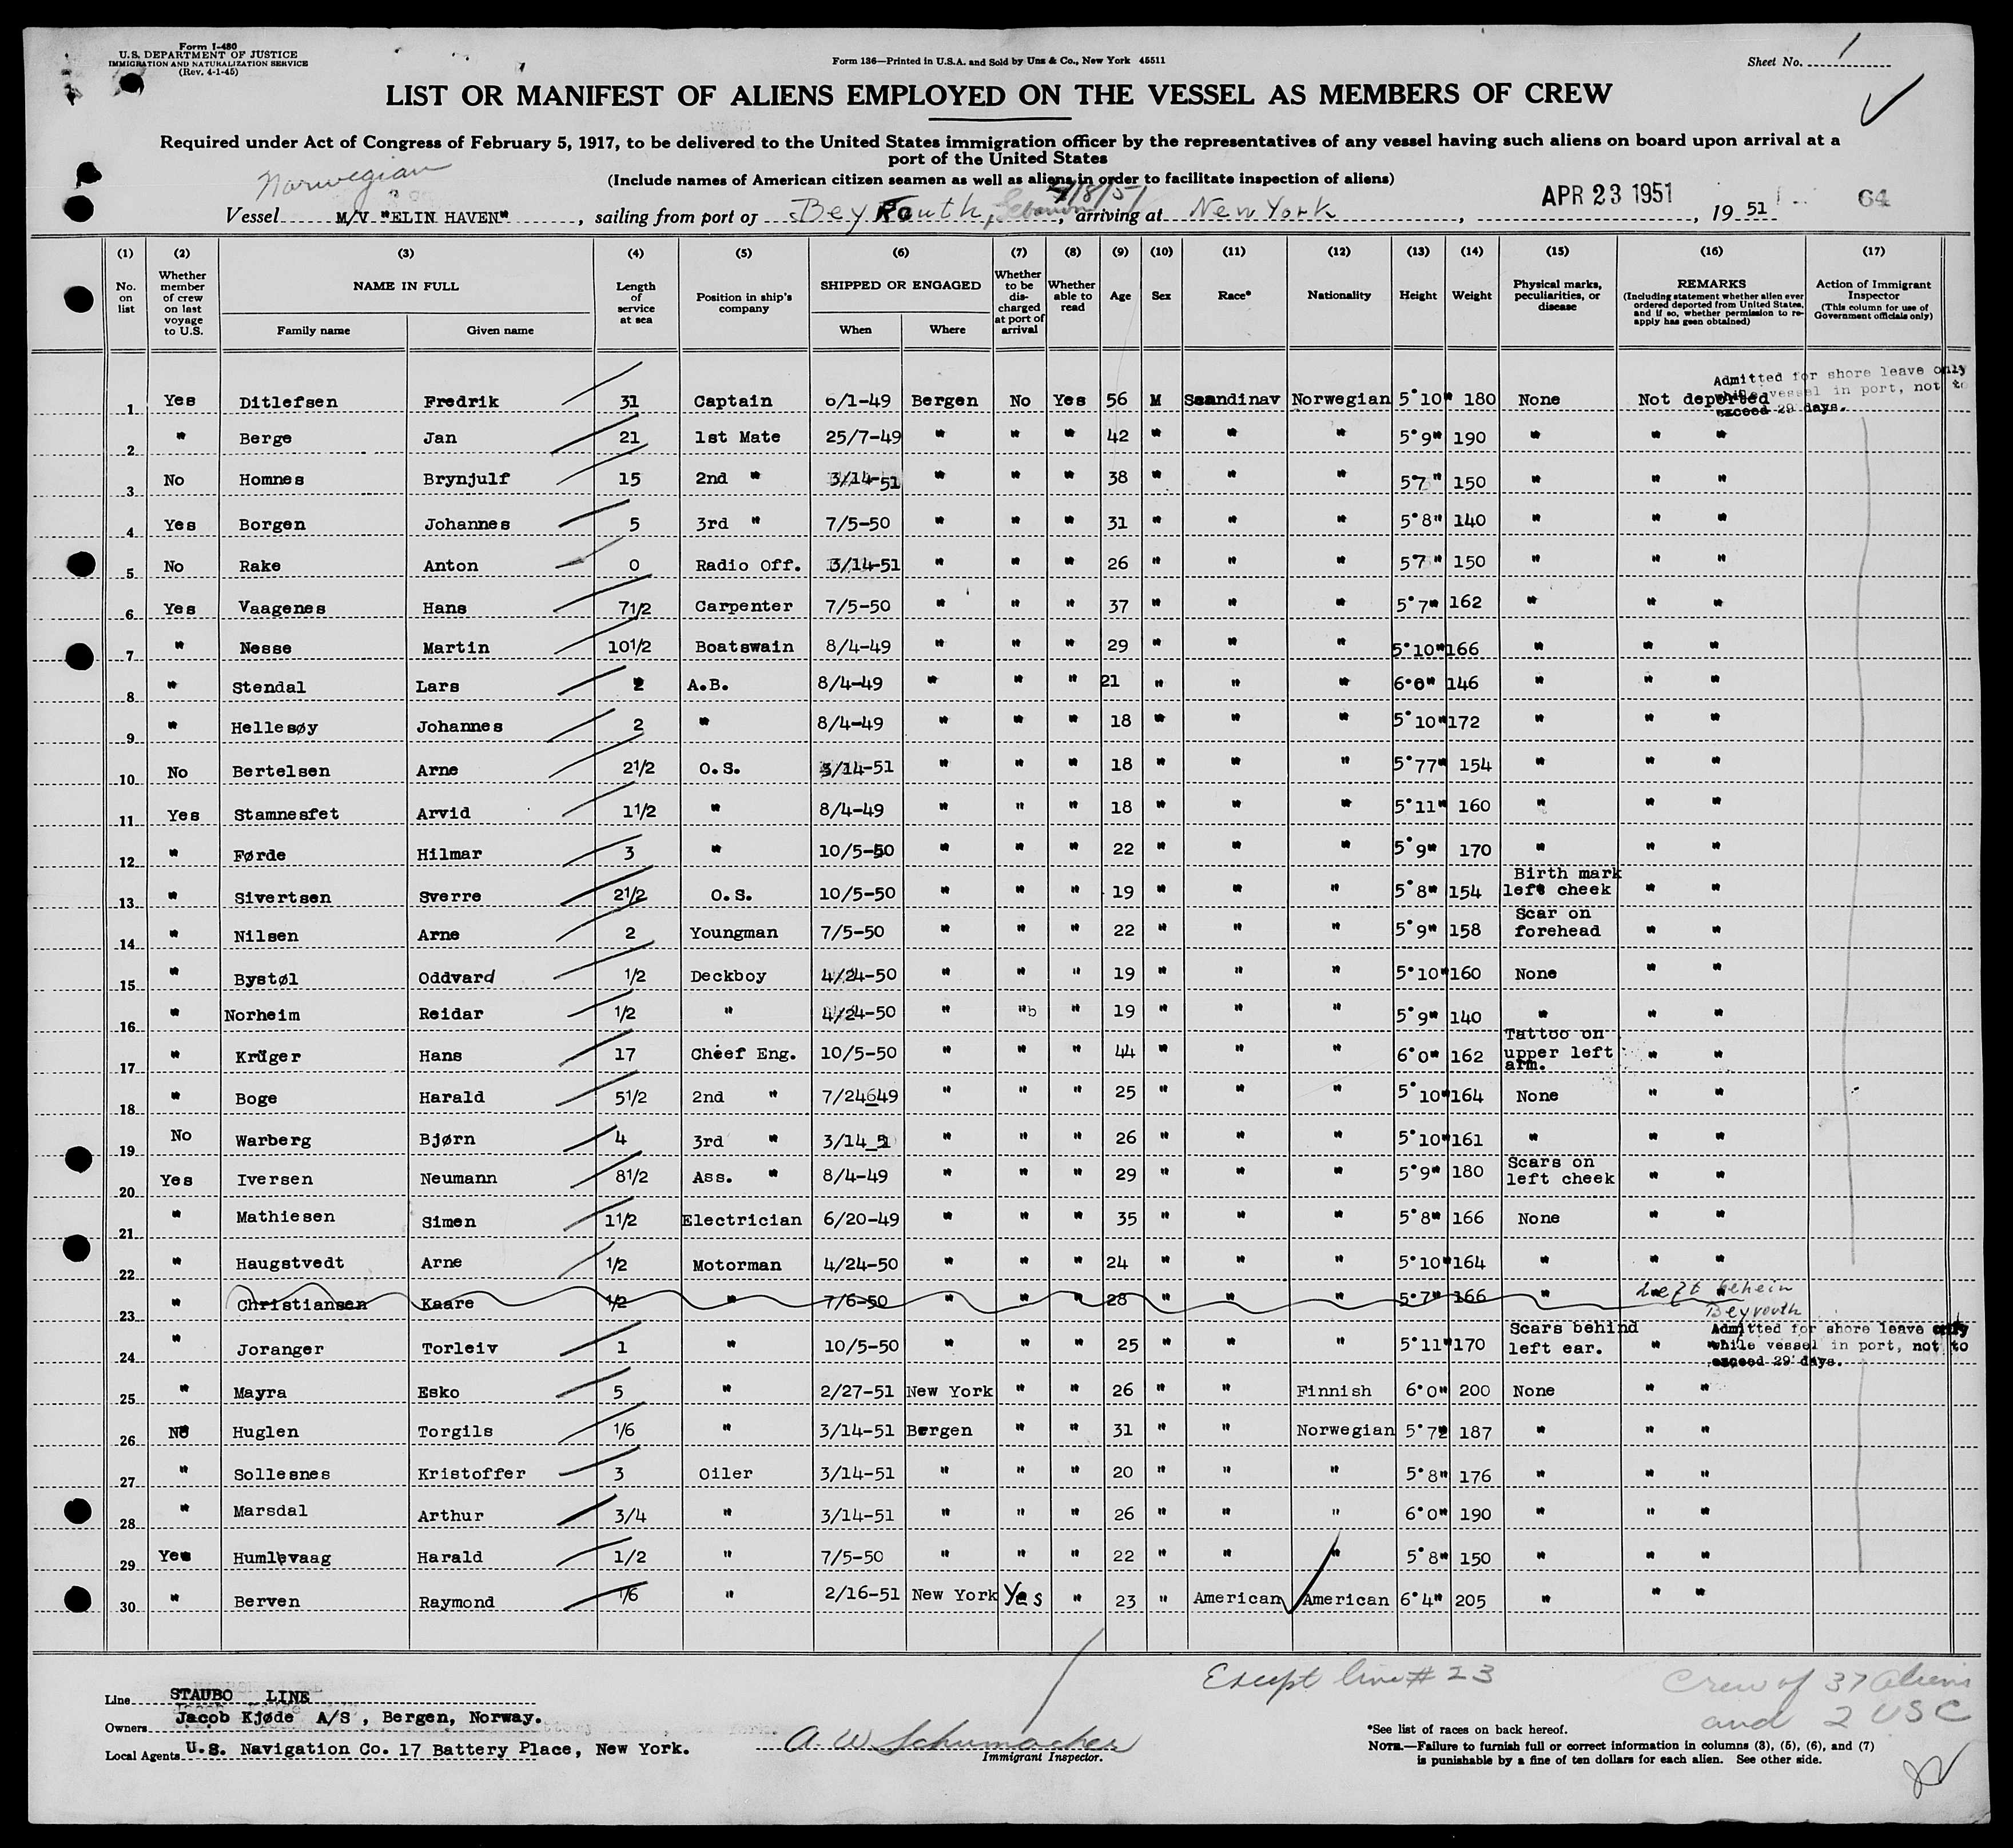 Form I-480
U. S. DEPARTMENT OF JUSTICE
IMMIGRATION AND NATURALIZATION SERVICE
(Rev. 4-1-45)
Form 136—Printed in U.S.A. and Sold by Unz & Co., New York 45511
Sheet No. 1
LIST OR MANIFEST OF ALIENS EMPLOYED ON THE VESSEL AS MEMBERS OF CREW
Required under Act of Congress of February 5, 1917, to be delivered to the United States immigration officer by the representatives of any vessel having such aliens on board upon arrival at a
port of the United States
(Include names of American citizen seamen as well as aliens in order to facilitate inspection of aliens)
Norwegian
Vessel M/V "ELIN HAVEN", sailing from port of Beyrouth, Lebanon 4/8/51, arriving at New York, APR 23 1951, 19 51 64
(1) (2) (3) (4) (5) (6) (7) (8) (9) (10) (11) (12) (13) (14) (15) (16) (17)
No. on list
Whether member of crew on last voyage to U.S.
NAME IN FULL
Family name Given name
Length of service at sea
Position in ship's company
SHIPPED OR ENGAGED
When Where
Whether to be discharged at port of arrival
Whether able to read
Age Sex Race* Nationality Height Weight
Physical marks, peculiarities, or disease
REMARKS
(Including statement whether alien ever ordered deported from United States, and if so, whether permission to re-apply has geen obtained)
Action of Immigrant Inspector
(This column for use of Government officials only)
Admitted for shore leave only
while vessel in port, not to
exceed 29 days.
1 Yes Ditlefsen Fredrik 31 Captain 6/1-49 Bergen No Yes 56 M Scandinav Norwegian 5°10" 180 None Not deported
2 " Berge Jan 21 1st Mate 25/7-49 " " " 42 " " " 5°9" 190 " " "
3 No Homnes Brynjulf 15 2nd " 3/14-51 " " " 38 " " " 5°7" 150 " " "
4 Yes Borgen Johannes 5 3rd " 7/5-50 " " " 31 " " " 5°8" 140 " " "
5 No Rake Anton 0 Radio Off. 3/14-51 " " " 26 " " " 5°7" 150 " " "
6 Yes Vaagenes Hans 7 1/2 Carpenter 7/5-50 " " " 37 " " " 5°7" 162 " " "
7 " Nesse Martin 10 1/2 Boatswain 8/4-49 " " " 29 " " " 5°10" 166 " " "
8 " Stendal Lars 2 A.B. 8/4-49 " " " 21 " " " 6°0" 146 " " "
9 " Hellesøy Johannes 2 " 8/4-49 " " " 18 " " " 5°10" 172 " " "
10 No Bertelsen Arne 2 1/2 O.S. 3/14-51 " " " 18 " " " 5°77" 154 " " "
11 Yes Stamnesfet Arvid 1 1/2 " 8/4-49 " " " 18 " " " 5°11" 160 " " "
12 " Førde Hilmar 3 " 10/5-50 " " " 22 " " " 5°9" 170 " " "
13 " Sivertsen Sverre 2 1/2 O.S. 10/5-50 " " " 19 " " " 5°8" 154 Birth mark left cheek " "
14 " Nilsen Arne 2 Youngman 7/5-50 " " " 22 " " " 5°9" 158 Scar on forehead " "
15 " Bystøl Oddvard 1/2 Deckboy 4/24-50 " " " 19 " " " 5°10" 160 None " "
16 " Norheim Reidar 1/2 " 4/24-50 " " " 19 " " " 5°9" 140 " " "
17 " Krüger Hans 17 Cheef Eng. 10/5-50 " " " 44 " " " 6°0" 162 Tattoo on upper left arm. " "
18 " Boge Harald 5 1/2 2nd " 7/24-49 " " " 25 " " " 5°10" 164 None " "
19 No Warberg Bjørn 4 3rd " 3/14-51 " " " 26 " " " 5°10" 161 " " "
20 Yes Iversen Neumann 8 1/2 Ass. " 8/4-49 " " " 29 " " " 5°9" 180 Scars on left cheek " "
21 " Mathiesen Simen 1 1/2 Electrician 6/20-49 " " " 35 " " " 5°8" 166 None " "
22 " Haugstvedt Arne 1/2 Motorman 4/24-50 " " " 24 " " " 5°10" 164 " " "
23 " Christiansen Kaare 1/2 " 7/6-50 " " " 28 " " " 5°7" 166 " Left behein Beyrouth
Admitted for shore leave only
while vessel in port, not to
exceed 29 days.
24 " Joranger Torleiv 1 " 10/5-50 " " " 25 " " " 5°11" 170 Scars behind left ear. "
25 " Mayra Esko 5 " 2/27-51 New York " " 26 " " Finnish 6°0" 200 None " "
26 No Huglen Torgils 1/6 " 3/14-51 Bergen " " 31 " " Norwegian 5°7" 187 " " "
27 " Sollesnes Kristoffer 3 Oiler 3/14-51 " " " 20 " " " 5°8" 176 " " "
28 " Marsdal Arthur 3/4 " 3/14-51 " " " 26 " " " 6°0" 190 " " "
29 Yes Humlevaag Harald 1/2 " 7/5-50 " " " 22 " " " 5°8" 150 " " "
30 " Berven Raymond 1/6 " 2/16-51 New York Yes " 23 " American American 6°4" 205 " " "
Except line # 23
Crew of 37 aliens
and 2 USC
Line STAUBO LINE
Owners Jacob Kjøde A/S, Bergen, Norway.
Local Agents U.S. Navigation Co. 17 Battery Place, New York.
A W Schumacher
Immigrant Inspector.
*See list of races on back hereof.
NOTE.—Failure to furnish full or correct information in columns (3), (5), (6), and (7)
is punishable by a fine of ten dollars for each alien. See other side.